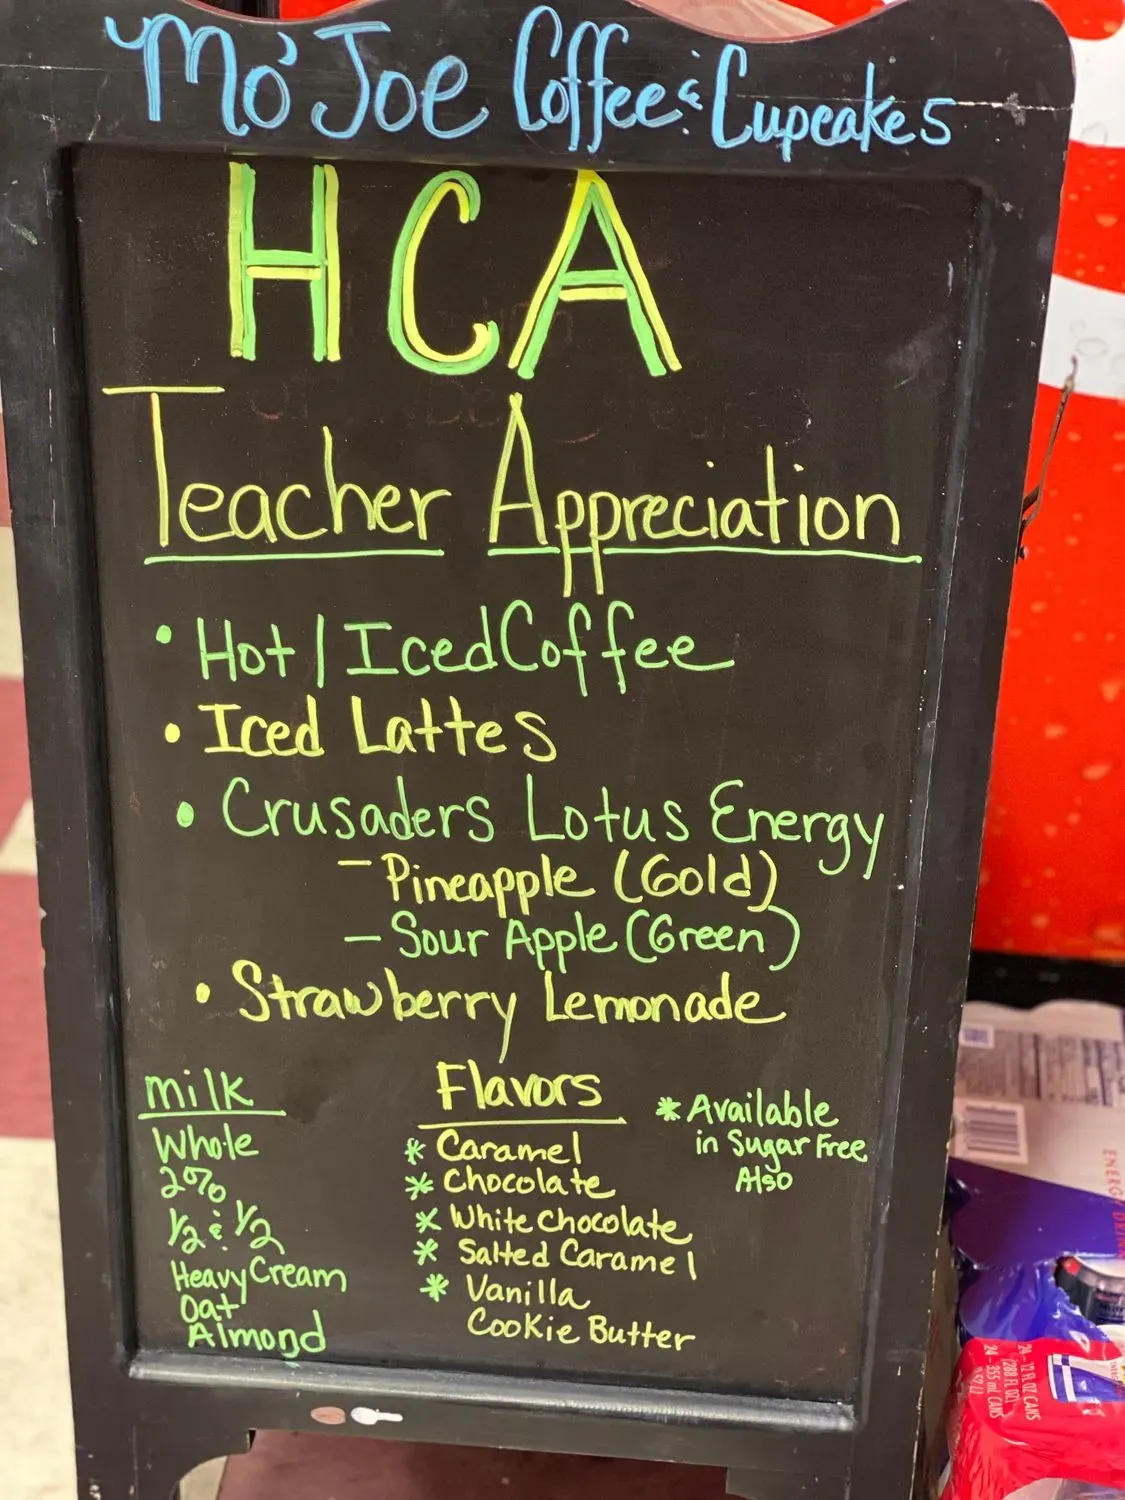 Mo'Joe Coffee & Cupcakes
HCA
Teacher Appreciation
• Hot / Iced Coffee
• Iced Lattes
• Crusaders Lotus Energy
- Pineapple (Gold)
- Sour Apple (Green)
• Strawberry Lemonade
milk
Whole
2%
1/2 & 1/2
Heavy Cream
Oat
Almond
Flavors
* Caramel
* Chocolate
* White Chocolate
* Salted Caramel
* Vanilla
Cookie Butter
* Available
in Sugar Free
Also
ENERGY DRINK
24 - 12 FL OZ CANS
(288 FL OZ)
24 - 355 mL CANS